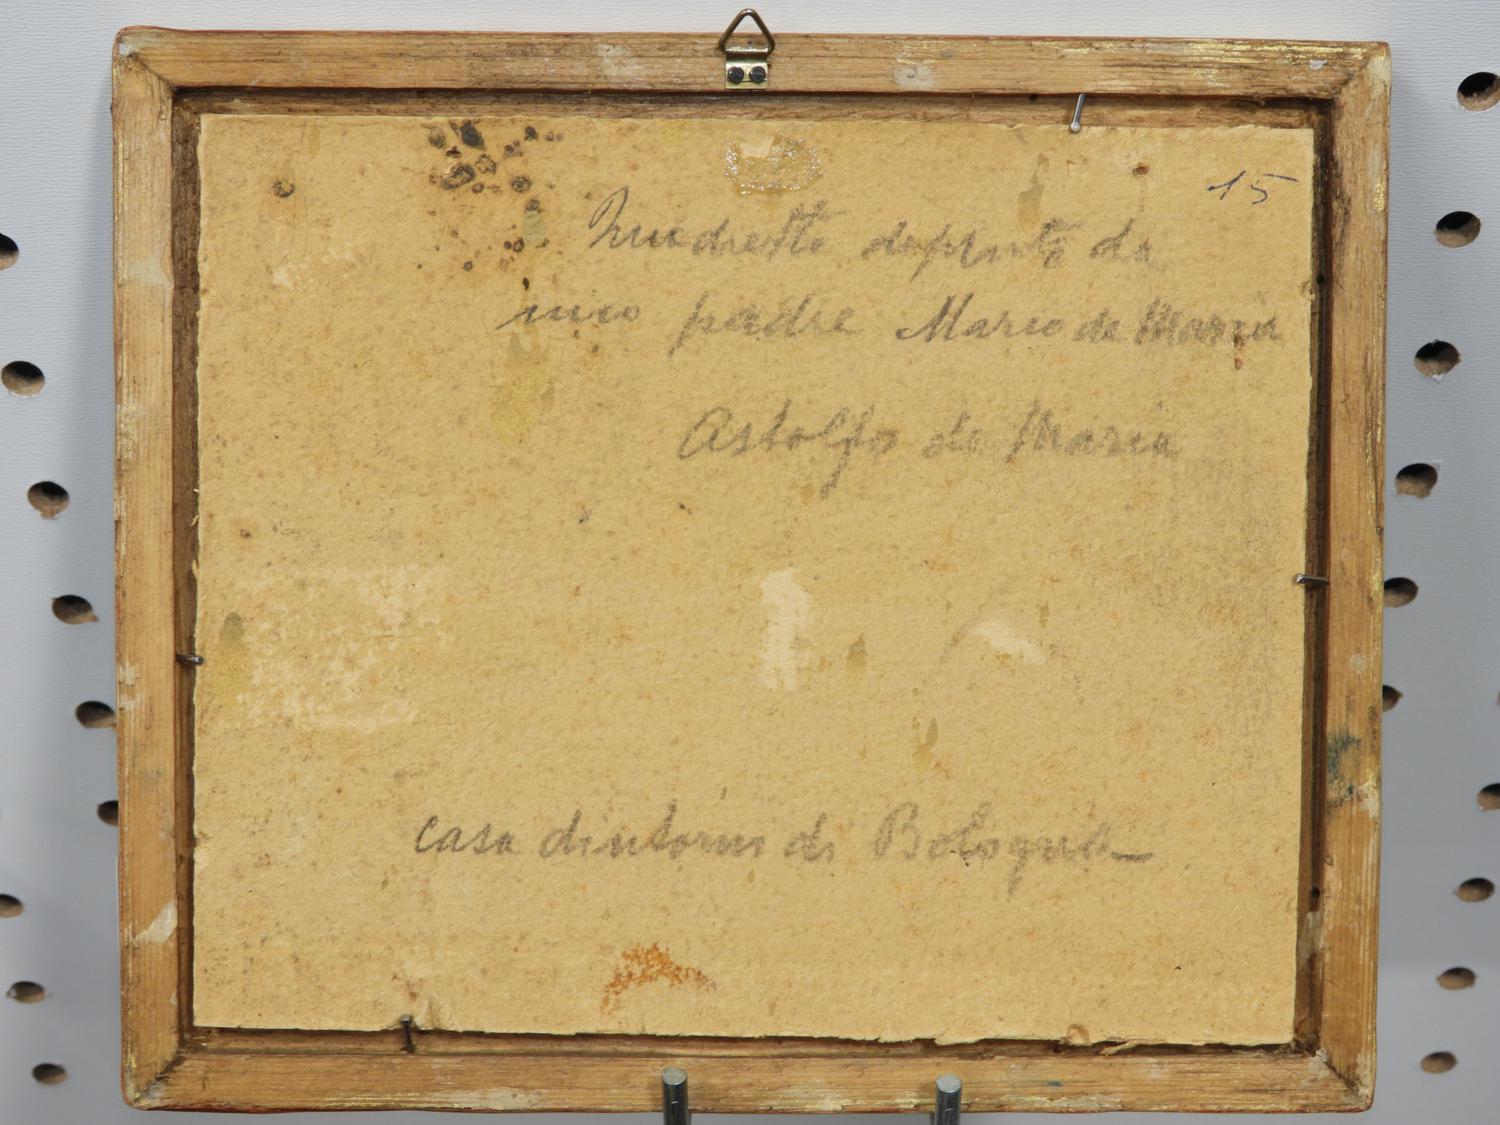 15
dipinto da
mio padre Mario de Maria
Astolfo de Maria
casa dintorni di Bologna